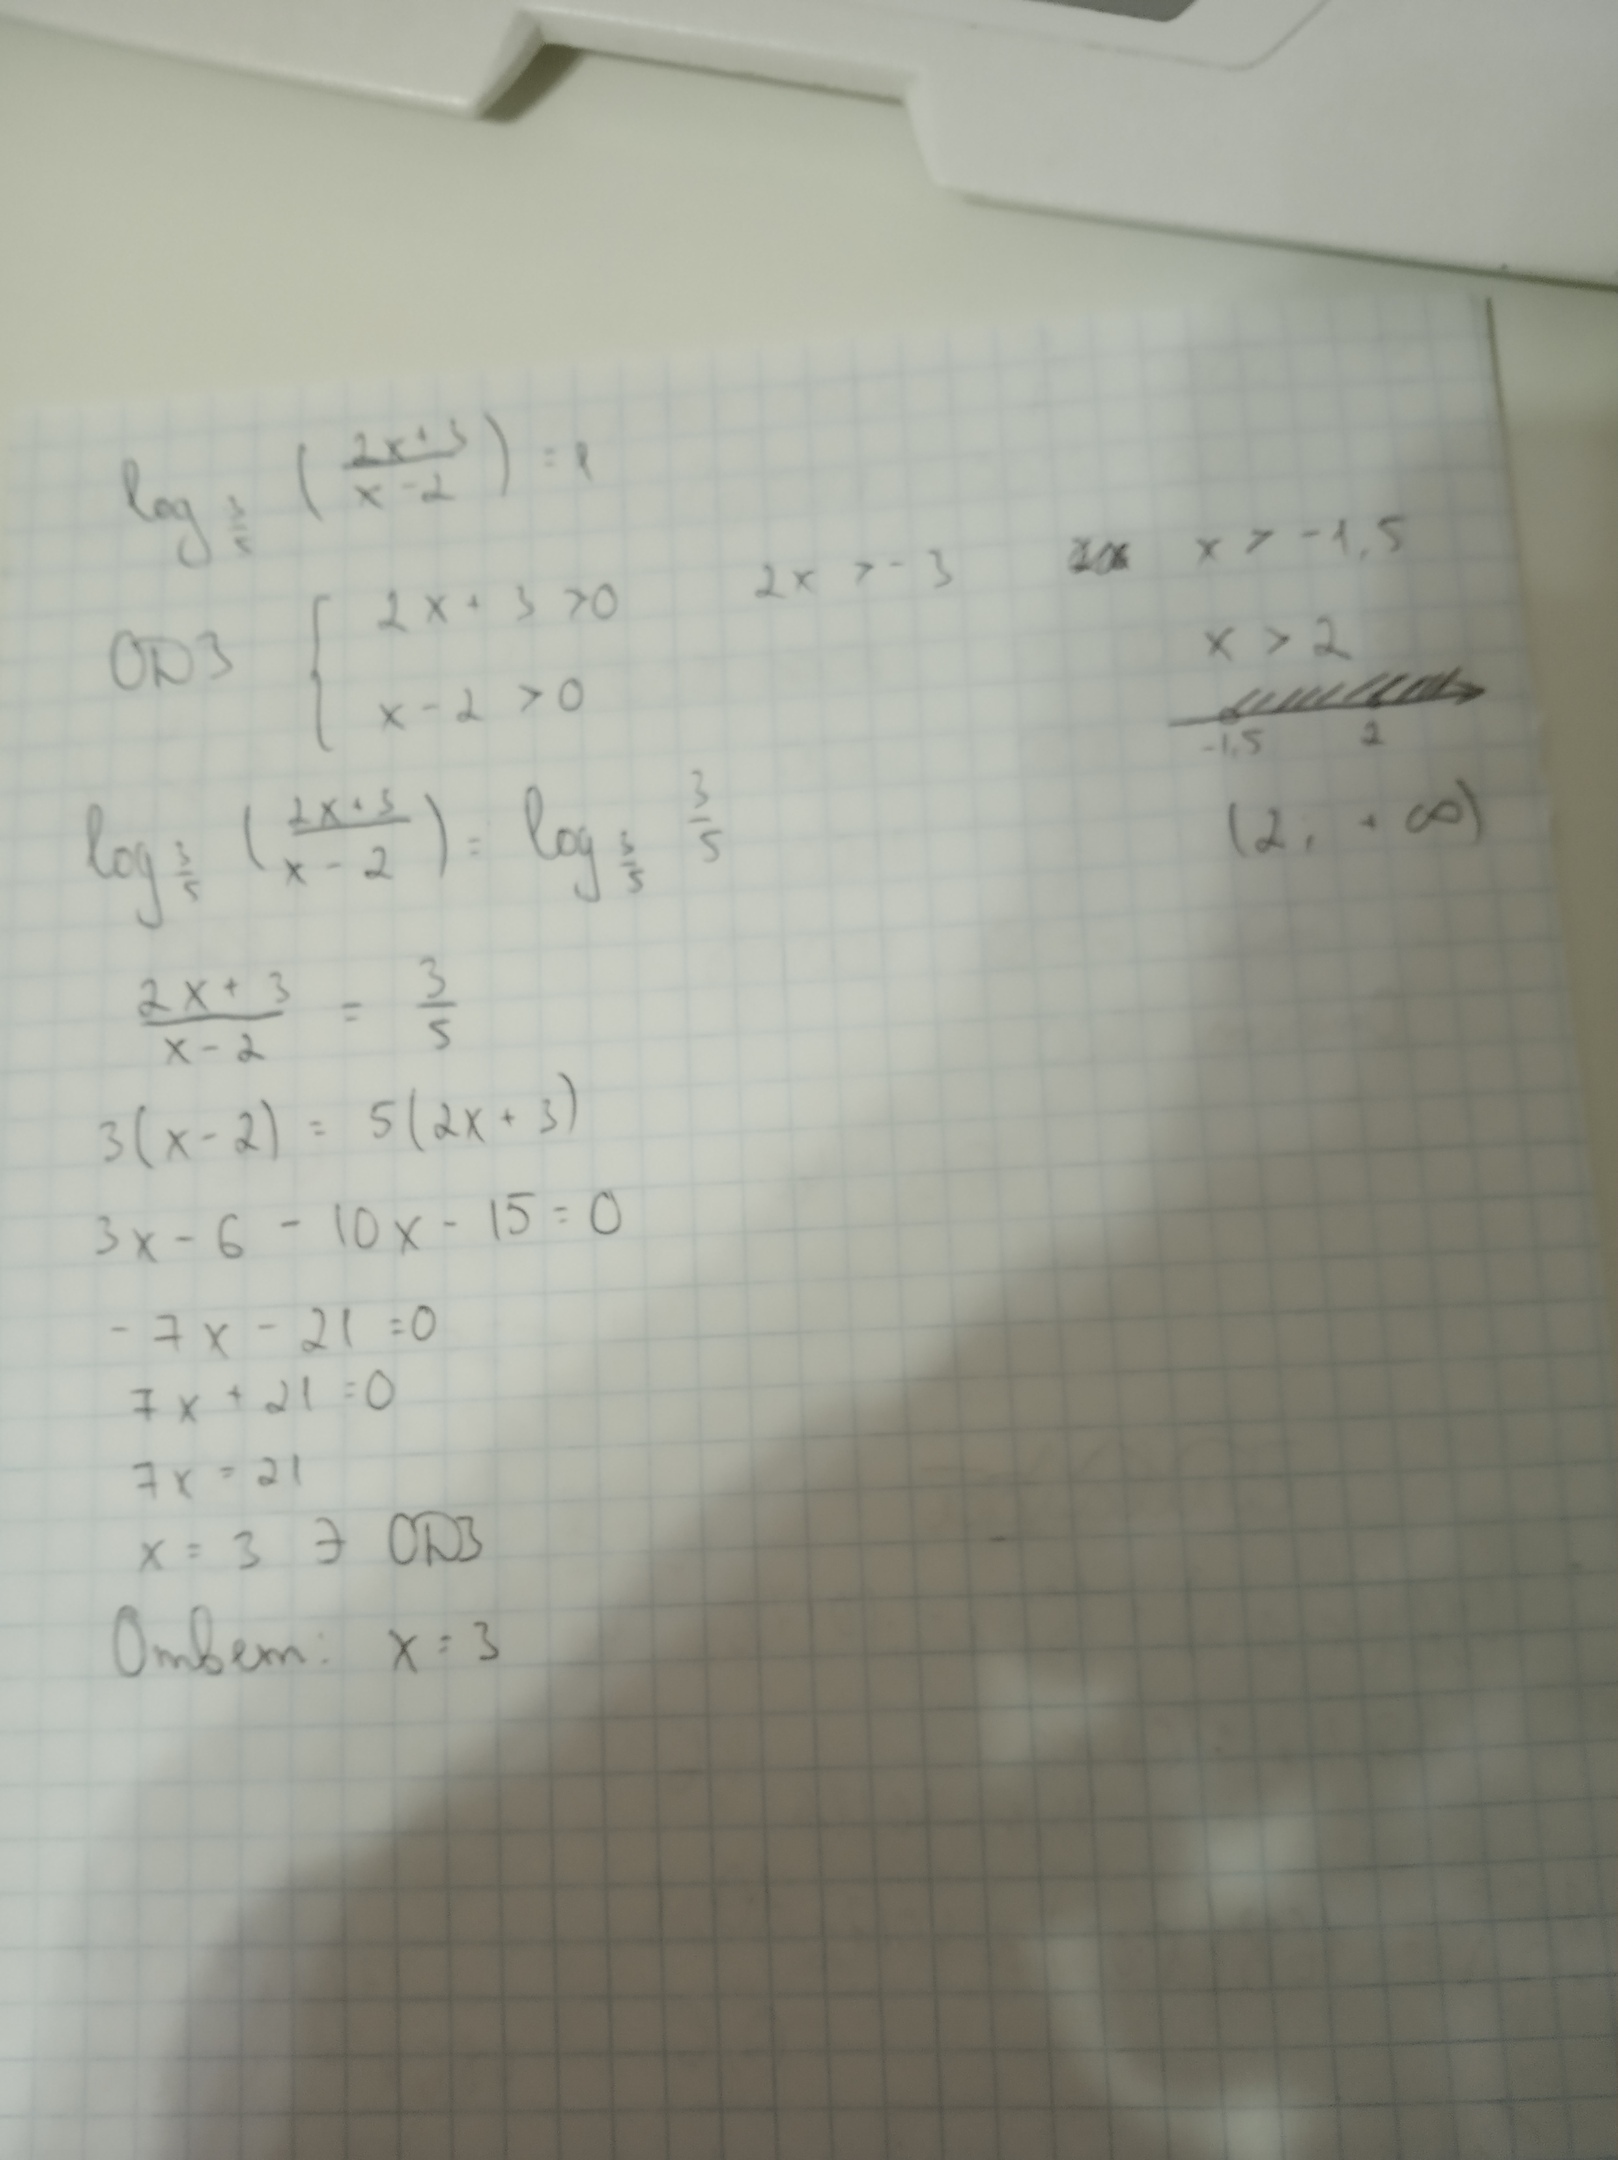 log 3/5 ( (2x+3)/(x-2) ) = 1
ОДЗ { 2x + 3 > 0    2x > -3    x > -1,5
x - 2 > 0    x > 2
-1,5    2
(2; +∞)
log 3/5 ( (2x+3)/(x-2) ) = log 3/5 3/5
(2x+3)/(x-2) = 3/5
3(x-2) = 5(2x+3)
3x - 6 - 10x - 15 = 0
-7x - 21 = 0
7x + 21 = 0
7x = 21
x = 3 ∋ ОДЗ
Ответ: x = 3